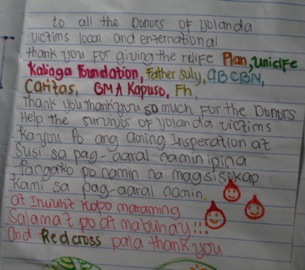 to all the Donors of yolanda
victims local and enternational
thank you for giving the relife Plan, unicife
Kalinga Foundation, Father suly, ABS CBN,
Caritas, GMA Kapuso, Fh,
thank you thank you so much For the Donors
Help the survivor of yolanda victims
Kanyou Po ang aming Insperation at
Susi sa pag-aaral namin ipina
Pangako po namin na magsisikap
Kami sa pag-aaral namin.
at Inuulit Kopo maraming
Salamat po at mabuhay!!
and Redcross pala thank you